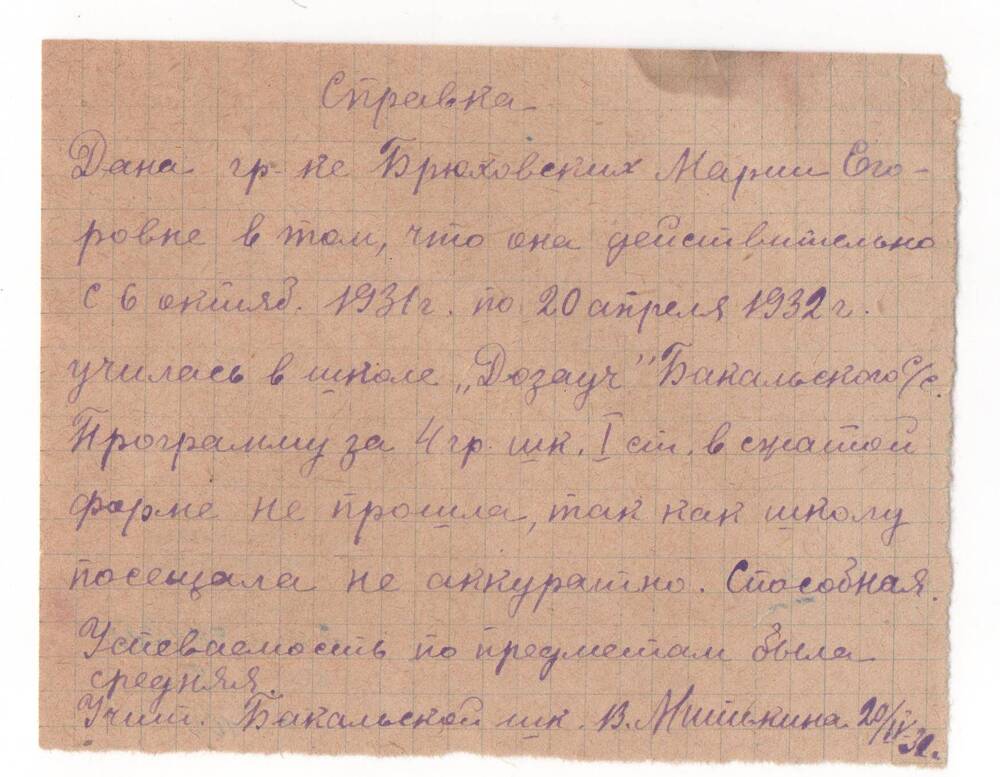 Справка
Дана гр-ке Брюховских Марии Его-
ровне в том, что она действительно
с 6 октяб. 1931 г. по 20 апреля 1932 г.
училась в школе „Дозауч" Бакальского с/с.
Программу за 4 гр. шк. I ст. в сжатой
форме не прошла, так как школу
посещала не аккуратно. Способная.
Успеваемость по предметам была
средняя.
Учит. Бакальской шк. В. Митькина 20/IV-32.